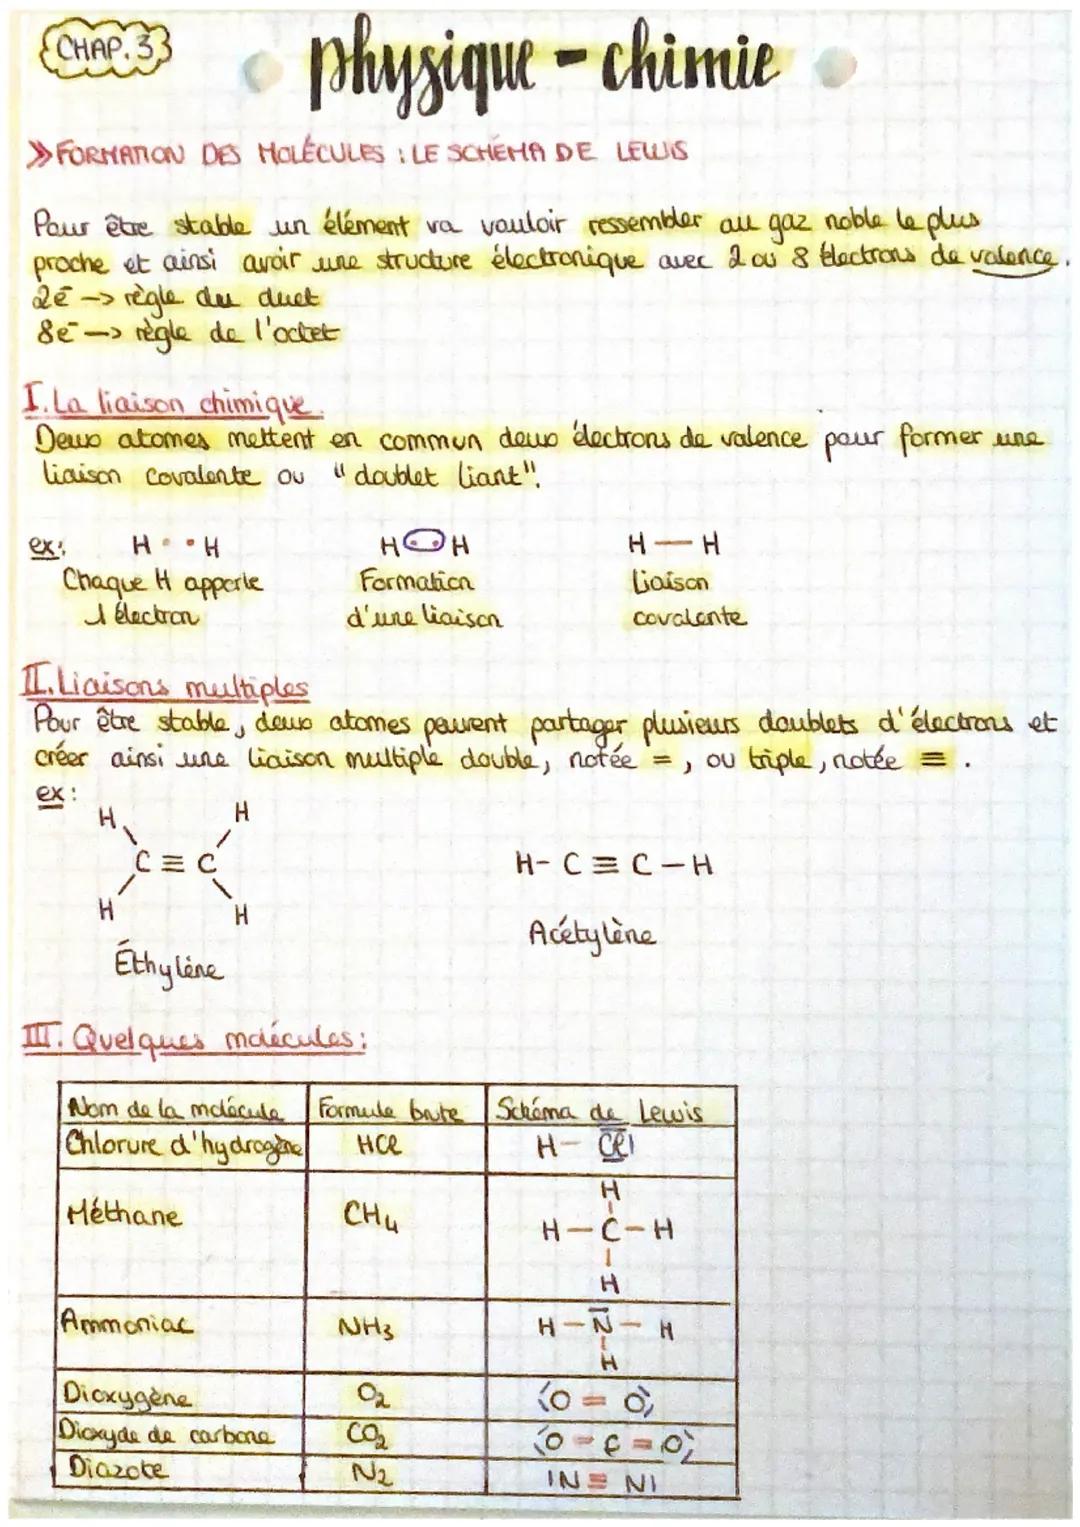 CHAP. 3
physique - chimie
>> FORMATION DES MOLÉCULES : LE SCHÉMA DE LEWIS
Pour être stable un élément va vouloir ressembler au gaz noble le plus
proche et ainsi avoir une structure électronique avec 2 ou 8 électrons de valence.
2e⁻ --> règle du duet
8e⁻ --> règle de l'octet
I. La liaison chimique.
Deux atomes mettent en commun deux électrons de valence pour former une
liaison covalente ou "doublet liant".
ex: H • • H H(••)H H — H
Chaque H apporte Formation Liaison
1 électron d'une liaison covalente
II. Liaisons multiples
Pour être stable, deux atomes peuvent partager plusieurs doublets d'électrons et
créer ainsi une liaison multiple double, notée =, ou triple, notée ≡.
ex:
H H
C ≡ C H - C ≡ C - H
H H
Acétylène
Éthylène
III. Quelques molécules :
Nom de la molécule Formule brute Schéma de Lewis
Chlorure d'hydrogène HCl H - Cl|
H
Méthane CH4 H - C - H
H
Ammoniac NH3 H - N - H
H
Dioxygène O2 O = O
Dioxyde de carbone CO2 O = C = O
Diazote N2 |N ≡ N|